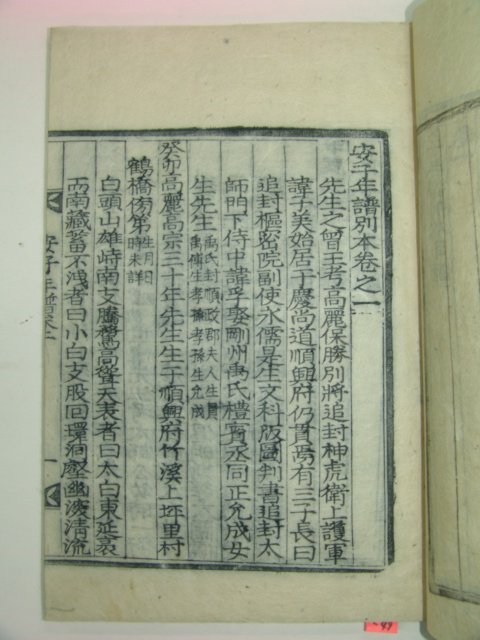 安子年譜別本卷之一
先生之曾王考高麗保勝別將追封神虎衛上護軍
諱子美始居于慶尚道順興府仍貫焉有三子長曰
追封樞密院副使永儒是生文科版圖判書追封太
師門下侍中諱孚娶剛州禹氏禮賓丞同正允成女
生先生
禹氏封順政郡夫人生員
禹偁生孝孫孝孫生允成
癸卯高麗高宗三十年先生生于順興府竹溪上坪里村
鶴橋傍第
生月日
時未詳
白頭山雄峙南支騰騖高聳天表者曰太白東延袤
而南藏蓄不洩者曰小白支股回環洞壑幽深清流
安子年譜卷之一
一
1-49